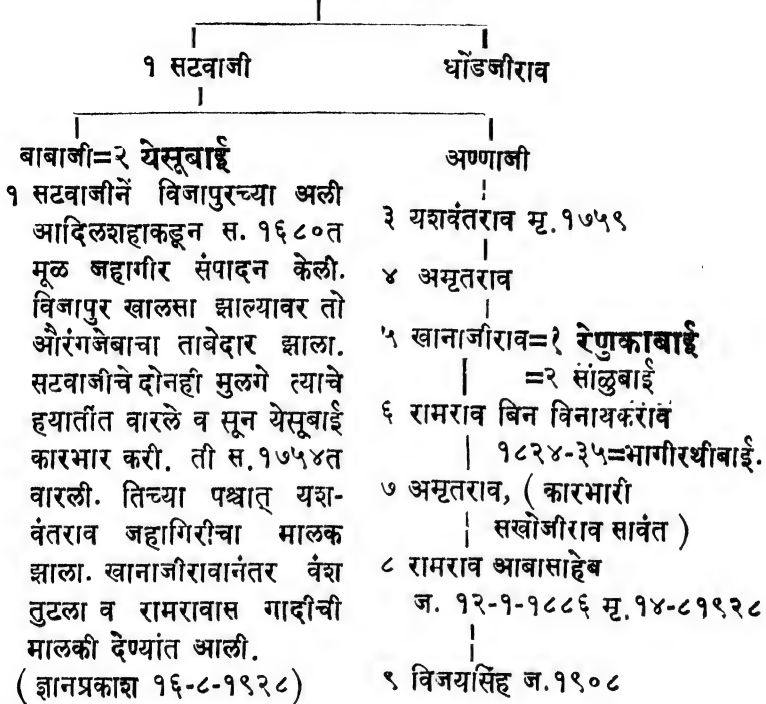 १ सटवाजी धोंडजीराव
बाबाजी=२ येसूबाई
१ सटवाजीनें विजापुरच्या अली
आदिलशहाकडून स. १६८०त
मूळ जहागीर संपादन केली.
विजापुर खालसा झाल्यावर तो
औरंगजेबाचा ताबेदार झाला.
सटवाजीचे दोनही मुलगे त्याचे
हयातींत वारले व सून येसूबाई
कारभार करी. ती स.१७५४त
वारली. तिच्या पश्चात् यश-
वंतराव जहागिरीचा मालक
झाला. खानाजीरावानंतर वंश
तुटला व रामरावास गादीची
मालकी देण्यांत आली.
(ज्ञानप्रकाश १६-८-१९२८)
अण्णाजी
३ यशवंतराव मृ.१७५९
४ अमृतराव
५ खानाजीराव=१ रेणुकाबाई
=२ साळुबाई
६ रामराव बिन विनायकराव
१८२४-३५=भागीरथीबाई.
७ अमृतराव, ( कारभारी
सखोजीराव सावंत )
८ रामराव आबासाहेब
ज. १२-१-१८८६ मृ.१४-८१९२८
९ विजयसिंह ज.१९०८